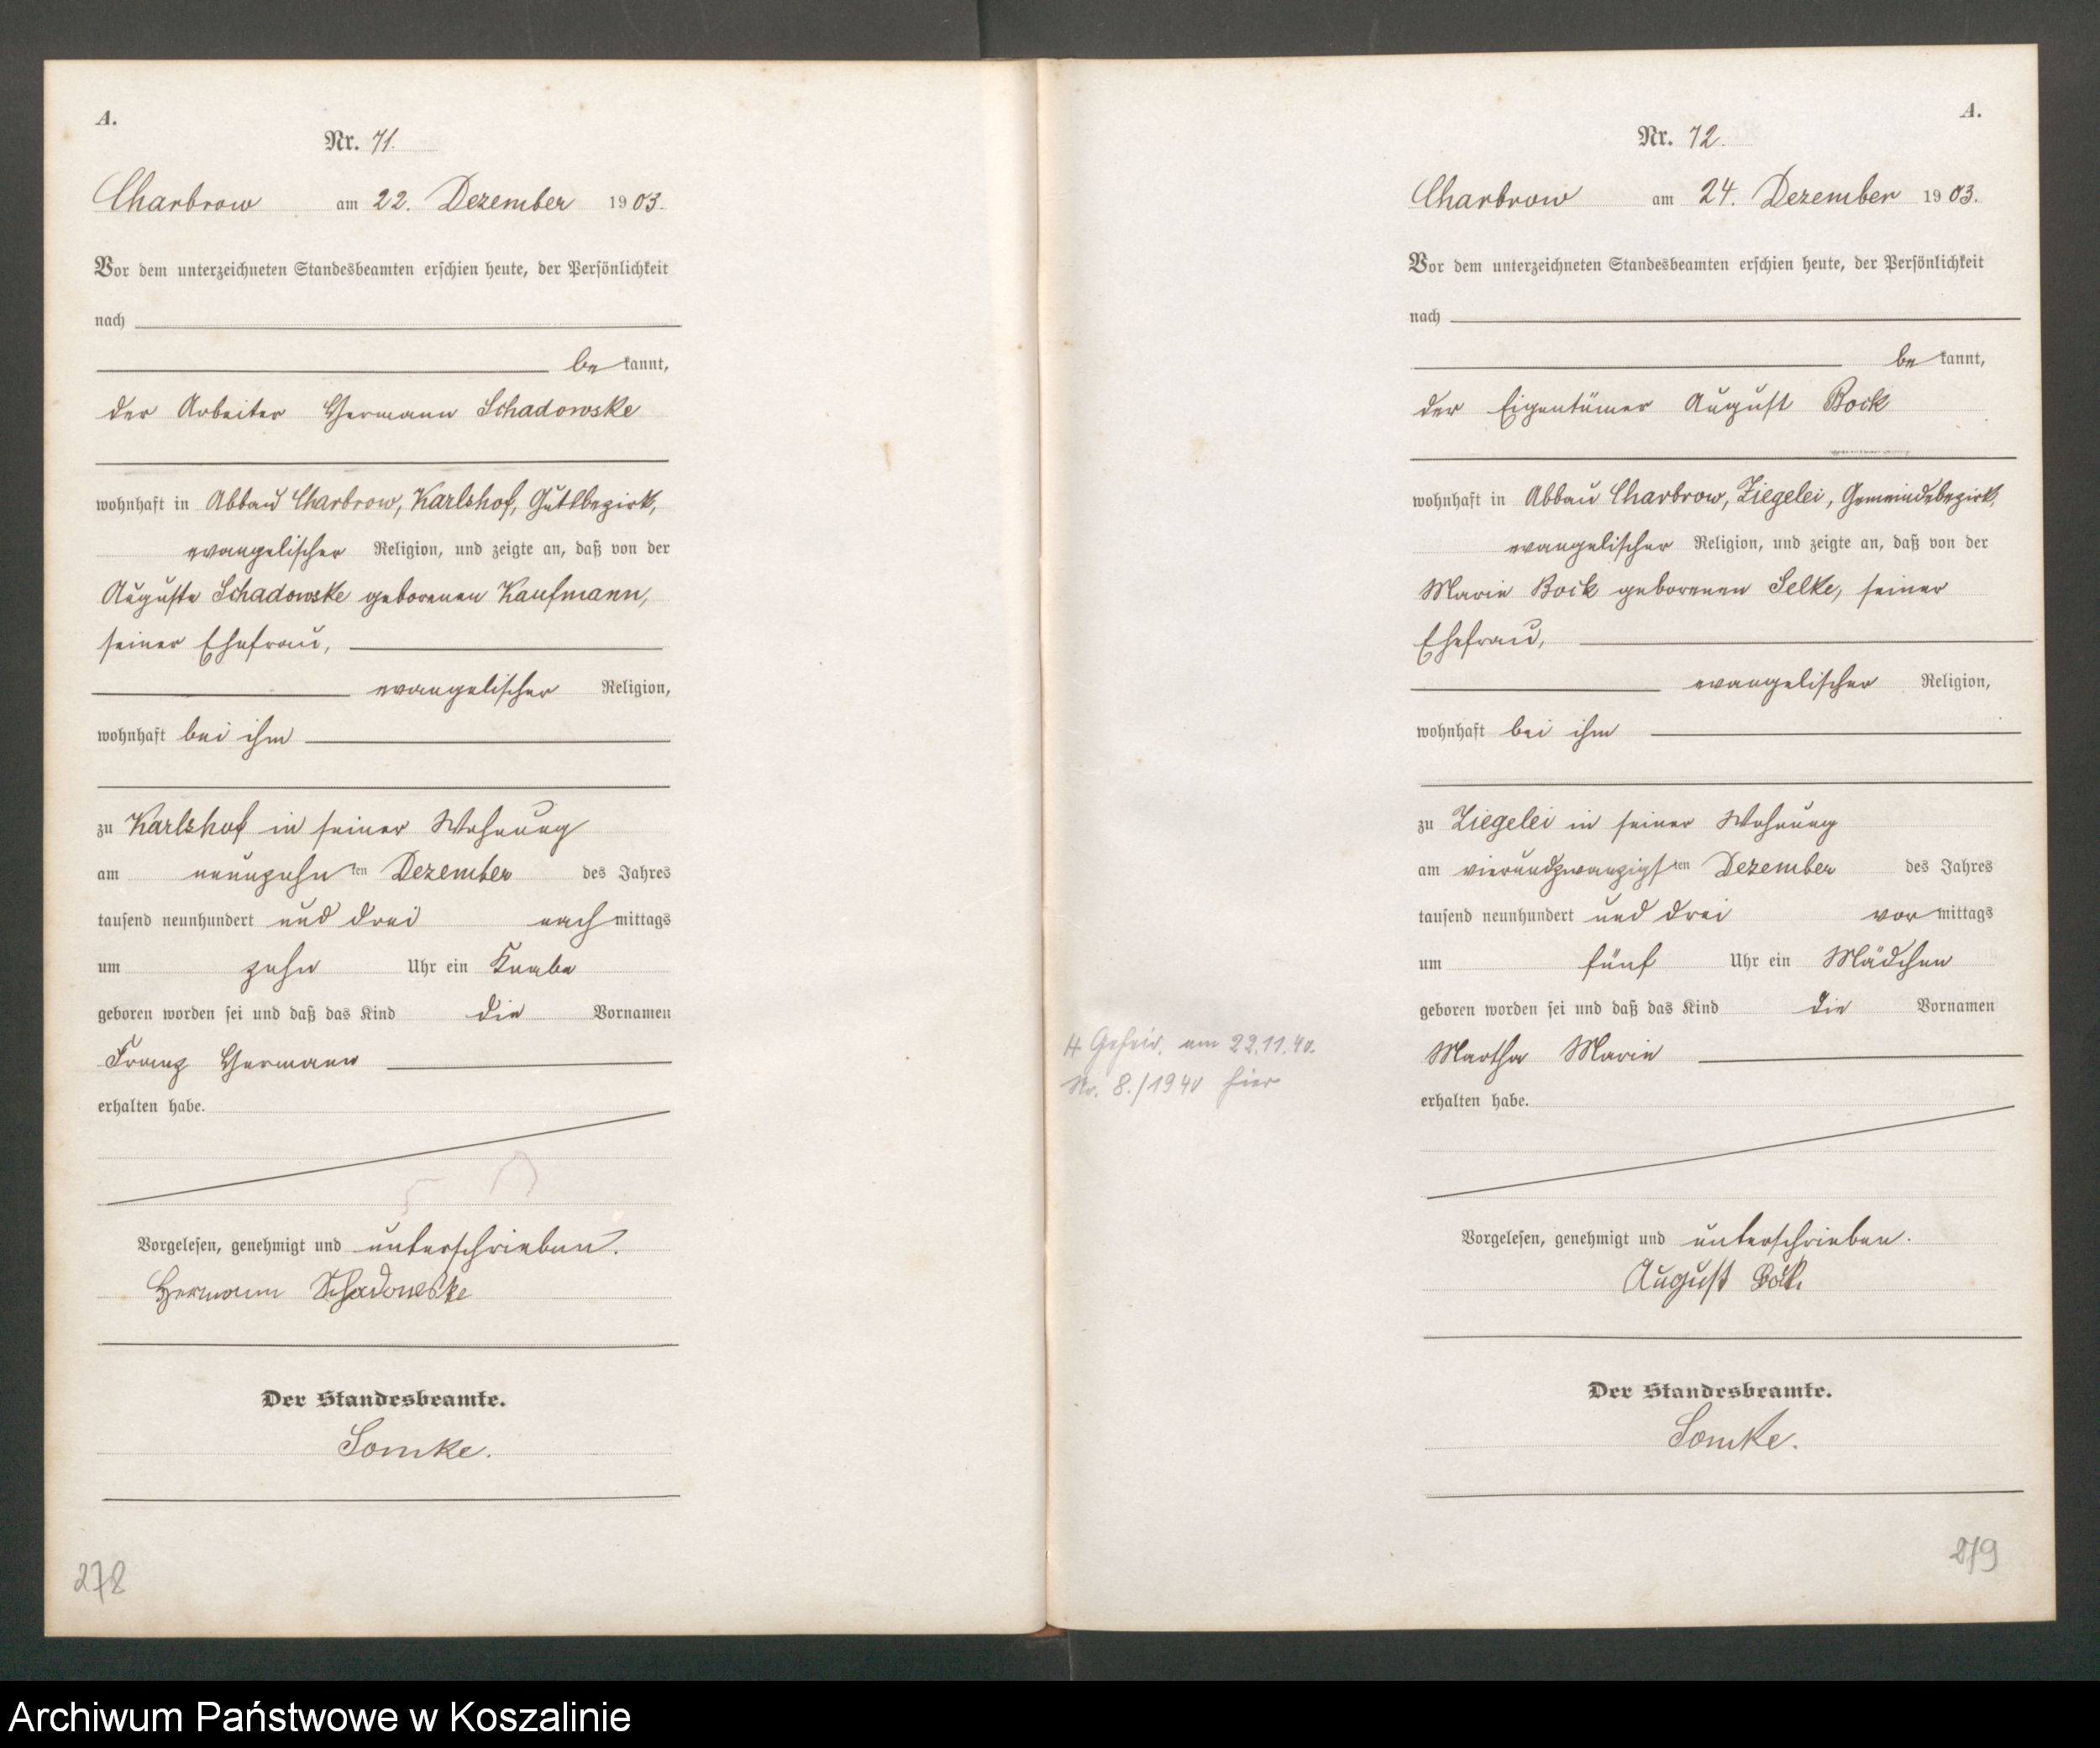 A.
Nr. 71.
Charbrow am 22. Dezember 1903.
Vor dem unterzeichneten Standesbeamten erschien heute, der Persönlichkeit
nach
be kannt,
der Arbeiter Hermann Schadowske
wohnhaft in Abbau Charbrow, Karlshof, Gutsbezirk,
evangelischer Religion, und zeigte an, daß von der
Auguste Schadowske geborenen Kaufmann,
seiner Ehefrau,
evangelischer Religion,
wohnhaft bei ihm
zu Karlshof in seiner Wohnung
am neunzehn ten Dezember des Jahres
tausend neunhundert und drei nach mittags
um zehn Uhr ein Knabe
geboren worden sei und daß das Kind die Vornamen
Franz Hermann
erhalten habe.
Vorgelesen, genehmigt und unterschrieben.
Hermann Schadowske
Der Standesbeamte.
Somke.
278
A.
Nr. 72.
Charbrow am 24. Dezember 1903.
Vor dem unterzeichneten Standesbeamten erschien heute, der Persönlichkeit
nach
be kannt,
der Eigentümer August Bock
wohnhaft in Abbau Charbrow, Ziegelei, Gemeindebezirk,
evangelischer Religion, und zeigte an, daß von der
Marie Bock geborenen Selke, seiner
Ehefrau,
evangelischer Religion,
wohnhaft bei ihm
zu Ziegelei in seiner Wohnung
am vierundzwanzigsten Dezember des Jahres
tausend neunhundert und drei vor mittags
um fünf Uhr ein Mädchen
geboren worden sei und daß das Kind die Vornamen
Martha Marie
erhalten habe.
am 22.11.40.
Nr. 8./1940 hier
Vorgelesen, genehmigt und unterschrieben.
August Bock
Der Standesbeamte.
Somke.
279
Archiwum Państwowe w Koszalinie